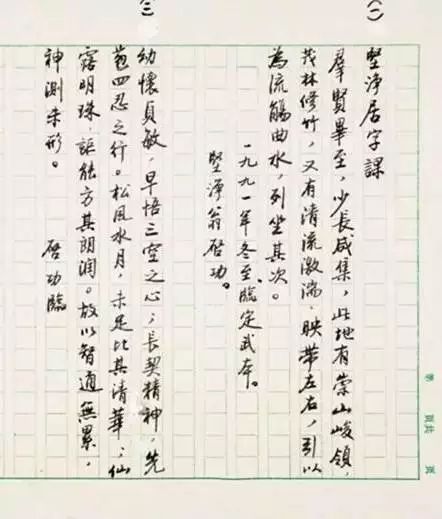 (一)
堅淨居字課
羣賢畢至，少長咸集，此地有崇山峻領，
茂林修竹，又有清流激湍，映帶左右，引以
為流觴曲水，列坐其次。
一九九一年冬至，臨定武本。
堅淨翁啓功。
(二)
幼懷貞敏，早悟三空之心；長契精神，先
苞四忍之行。松風水月，未足比其清華；仙
露明珠，詎能方其朗潤。故以智通無累，
神測未形。
啓功臨
第 頁共 頁